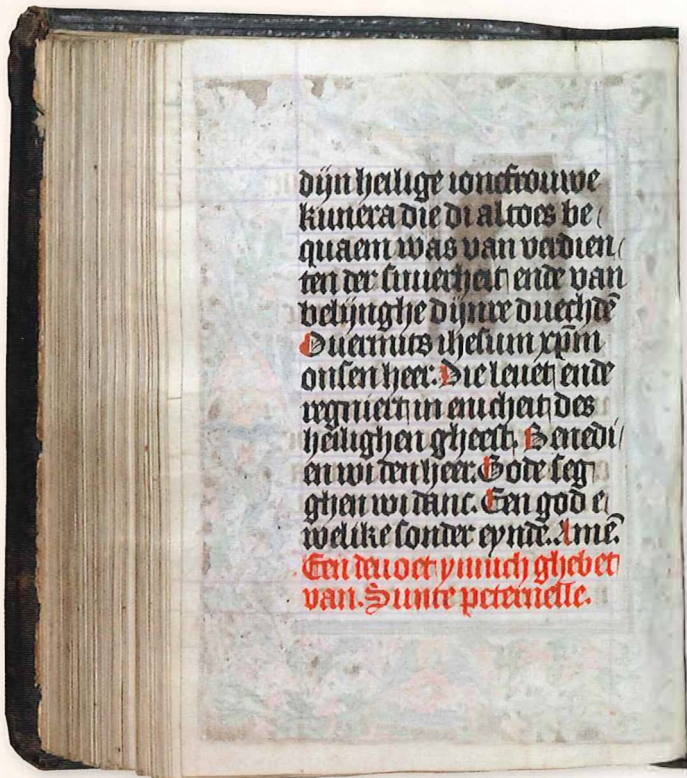 dyn heilige ioncfrouwe
kunera die di altoes be/
quaem was van verdien/
ten der suuerheit ende van
belijnghe dijnre duechdē
Ouermits ihesum xp̄m
onsen heer. Die leuet ende
regniert in enicheit des
heilighen gheest. Benedi/
en wi den heer. Gode seg
ghen wi danc. Een god e/
welike sonder eynde. Amē.
Een deuoet ynnich ghebet
van. Sunte peternelle.